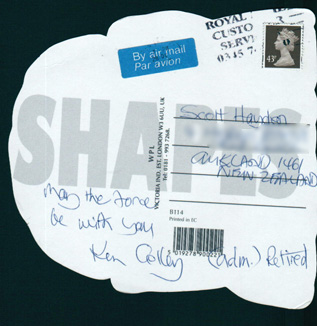 ROYAL
CUSTO
SERV
0345 7
By air mail
Par avion
43
SHAPES
WPL
VICTORIA IND. EST. LONDON W3 6UU, UK
Tel: 0181 - 993 7268.
Scott
AUKLAND 1461
NEW ZEALAND
B114
Printed in EC
May the force
be with you
Ken Colley (adm.) Retired